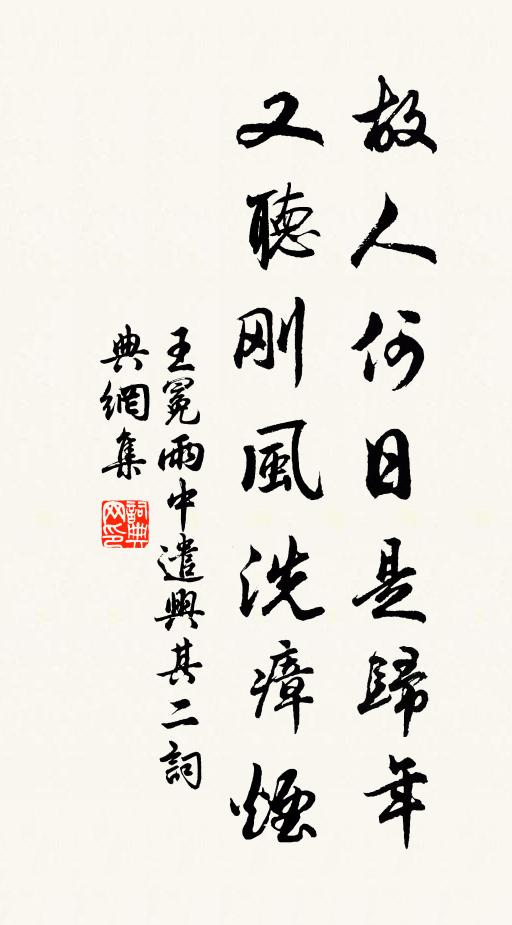 故人何日是歸年
又聽刚風洗瘴煙
王冕雨中遣興其二詞
典網集
詞典网印